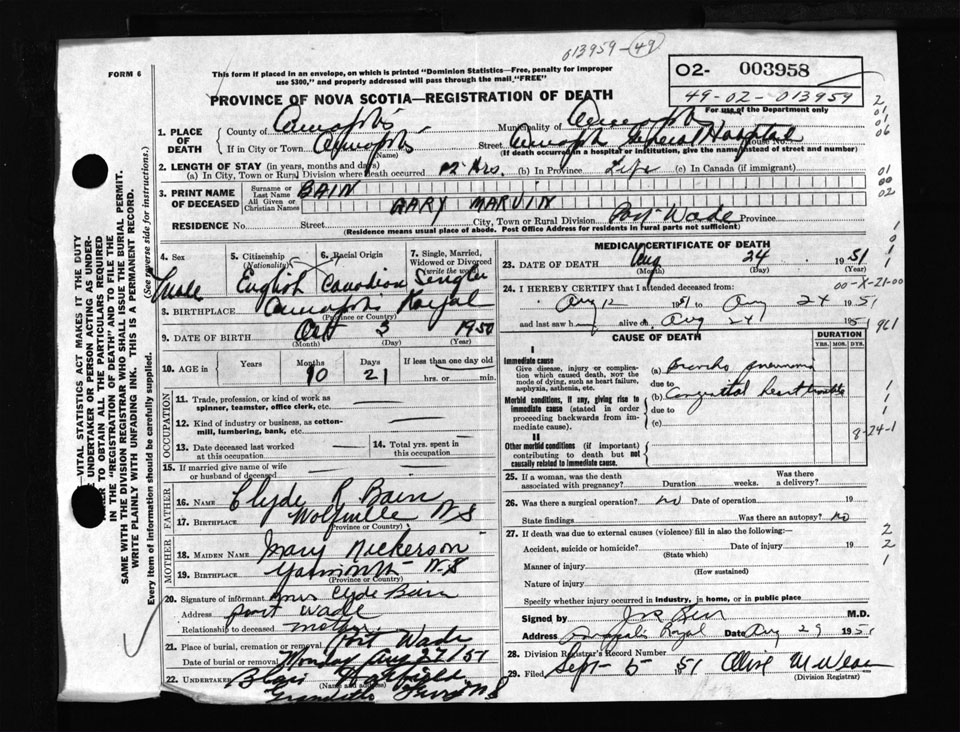 013959-(49)
FORM 6
This form if placed in an envelope, on which is printed "Dominion Statistics—Free, penalty for improper use $300," and properly addressed will pass through the mail "FREE"
02- 003958
49-02-013959
For use of the Department only
PROVINCE OF NOVA SCOTIA—REGISTRATION OF DEATH
1. PLACE OF DEATH County of Municipality of
If in City or Town (Name) Street General Hospital House No.
(If death occurred in a hospital or institution, give the name instead of street and number)
2. LENGTH OF STAY (in years, months and days)
(a) In City, Town or Rural Division where death occurred 12 Hrs. (b) In Province Life (c) In Canada (if immigrant)
3. PRINT NAME OF DECEASED Surname or Last Name BAIN
All Given or Christian Names GARY MARVIN
RESIDENCE No. Street City, Town or Rural Division Port Wade Province
(Residence means usual place of abode. Post Office Address for Residents in rural parts not sufficient)
4. Sex Male
5. Citizenship (Nationality) English
6. Racial Origin Canadian
7. Single, Married, Widowed or Divorced (write the word) Single
8. BIRTHPLACE Royal
(Province or Country)
9. DATE OF BIRTH Oct 3 1950
(Month) (Day) (Year)
10. AGE in Years Months 10 Days 21 If less than one day old hrs. or min.
OCCUPATION
11. Trade, profession, or kind of work as spinner, teamster, office clerk, etc.
12. Kind of industry or business, as cotton-mill, lumbering, bank, etc.
13. Date deceased last worked at this occupation
14. Total yrs. spent in this occupation
15. If married give name of wife or husband of deceased
FATHER
16. NAME Clyde R Bain
17. BIRTHPLACE Wolfville N.S
(Province or Country)
MOTHER
18. MAIDEN NAME Mary Nickerson
19. BIRTHPLACE Yarmouth N.S
(Province or Country)
20. Signature of informant Mrs Clyde Bain
Address Port Wade
Relationship to deceased mother
21. Place of burial, cremation or removal Port Wade
Date of burial or removal Monday Aug 27/51
22. UNDERTAKER Hatfield
(Name and address)
N S
MEDICAL CERTIFICATE OF DEATH
23. DATE OF DEATH Aug 24 1951
(Month) (Day) (Year)
24. I HEREBY CERTIFY that I attended deceased from:
Aug 12 1951 to Aug 24 1951
and last saw h alive on Aug 24 1951
CAUSE OF DEATH
DURATION
YRS. MOS. DYS.
I
Immediate cause
Give disease, injury or complication which caused death, NOT the mode of dying, such as heart failure, asphyxia, asthenia, etc.
(a) Broncho pneumonia
due to
Morbid conditions, if any, giving rise to immediate cause (stated in order proceeding backwards from immediate cause).
(b) Congenital heart trouble
due to
(c)
II
Other morbid conditions (if important) contributing to death but not causally related to immediate cause.
25. If a woman, was the death associated with pregnancy? Duration weeks. Was there a delivery?
26. Was there a surgical operation? no Date of operation 19
State findings Was there an autopsy? no
27. If death was due to external causes (violence) fill in also the following:—
Accident, suicide or homicide? Date of injury 19
(State which)
Manner of injury
(How sustained)
Nature of injury
Specify whether injury occurred in industry, in home, or in public place
Signed by M.D.
Address Royal Date Aug 29 1951
28. Division Registrar's Record Number
29. Filed Sept 5 51
(Division Registrar)
2
01
06
01
00
02
1
0
1
1
00-X-21-00
961
1
1
1
8-24-1
2
2
1
—VITAL STATISTICS ACT MAKES IT THE DUTY
UNDERTAKER OR PERSON ACTING AS UNDER-
TO OBTAIN ALL THE PARTICULARS REQUIRED
IN THE "REGISTRATION OF DEATH" AND TO FILE THE
SAME WITH THE DIVISION REGISTRAR WHO SHALL ISSUE THE BURIAL PERMIT.
WRITE PLAINLY WITH UNFADING INK. THIS IS A PERMANENT RECORD.
Every item of information should be carefully supplied. (See reverse side for instructions.)